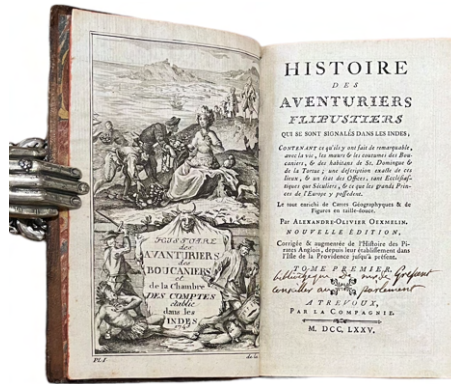 HISTOIRE
des
AVANTURIERS
des
BOUCANIERS
et
de la Chambre
DES COMPTES
etablie
dans les
INDES
Pl. I.
HISTOIRE
DES
AVENTURIERS
FLIBUSTIERS
QUI SE SONT SIGNALÉS DANS LES INDES,
CONTENANT ce qu'ils y ont fait de remarquable,
avec la vie, les mœurs & les coutumes des Bou-
caniers, & des habitans de St. Domingue &
de la Tortue ; une description exacte de ces
lieux, & un état des Offices, tant Ecclésias-
tiques que Séculiers, & ce que les grands Prin-
ces de l'Europe y possedent.
Le tout enrichi de Cartes Géographyques & de
Figures en taille-douce.
Par ALEXANDRE-OLIVIER OEXMELIN.
NOUVELLE ÉDITION,
Corrigée & augmentée de l'Histoire des Pi-
rates Anglois, depuis leur établissement dans
l'Isle de la Providence jusqu'à présent.
TOME PREMIER.
bibliotheque De mr de
conseiller au parlement
A TREVOUX,
PAR LA COMPAGNIE.
M. DCC. LXXV.